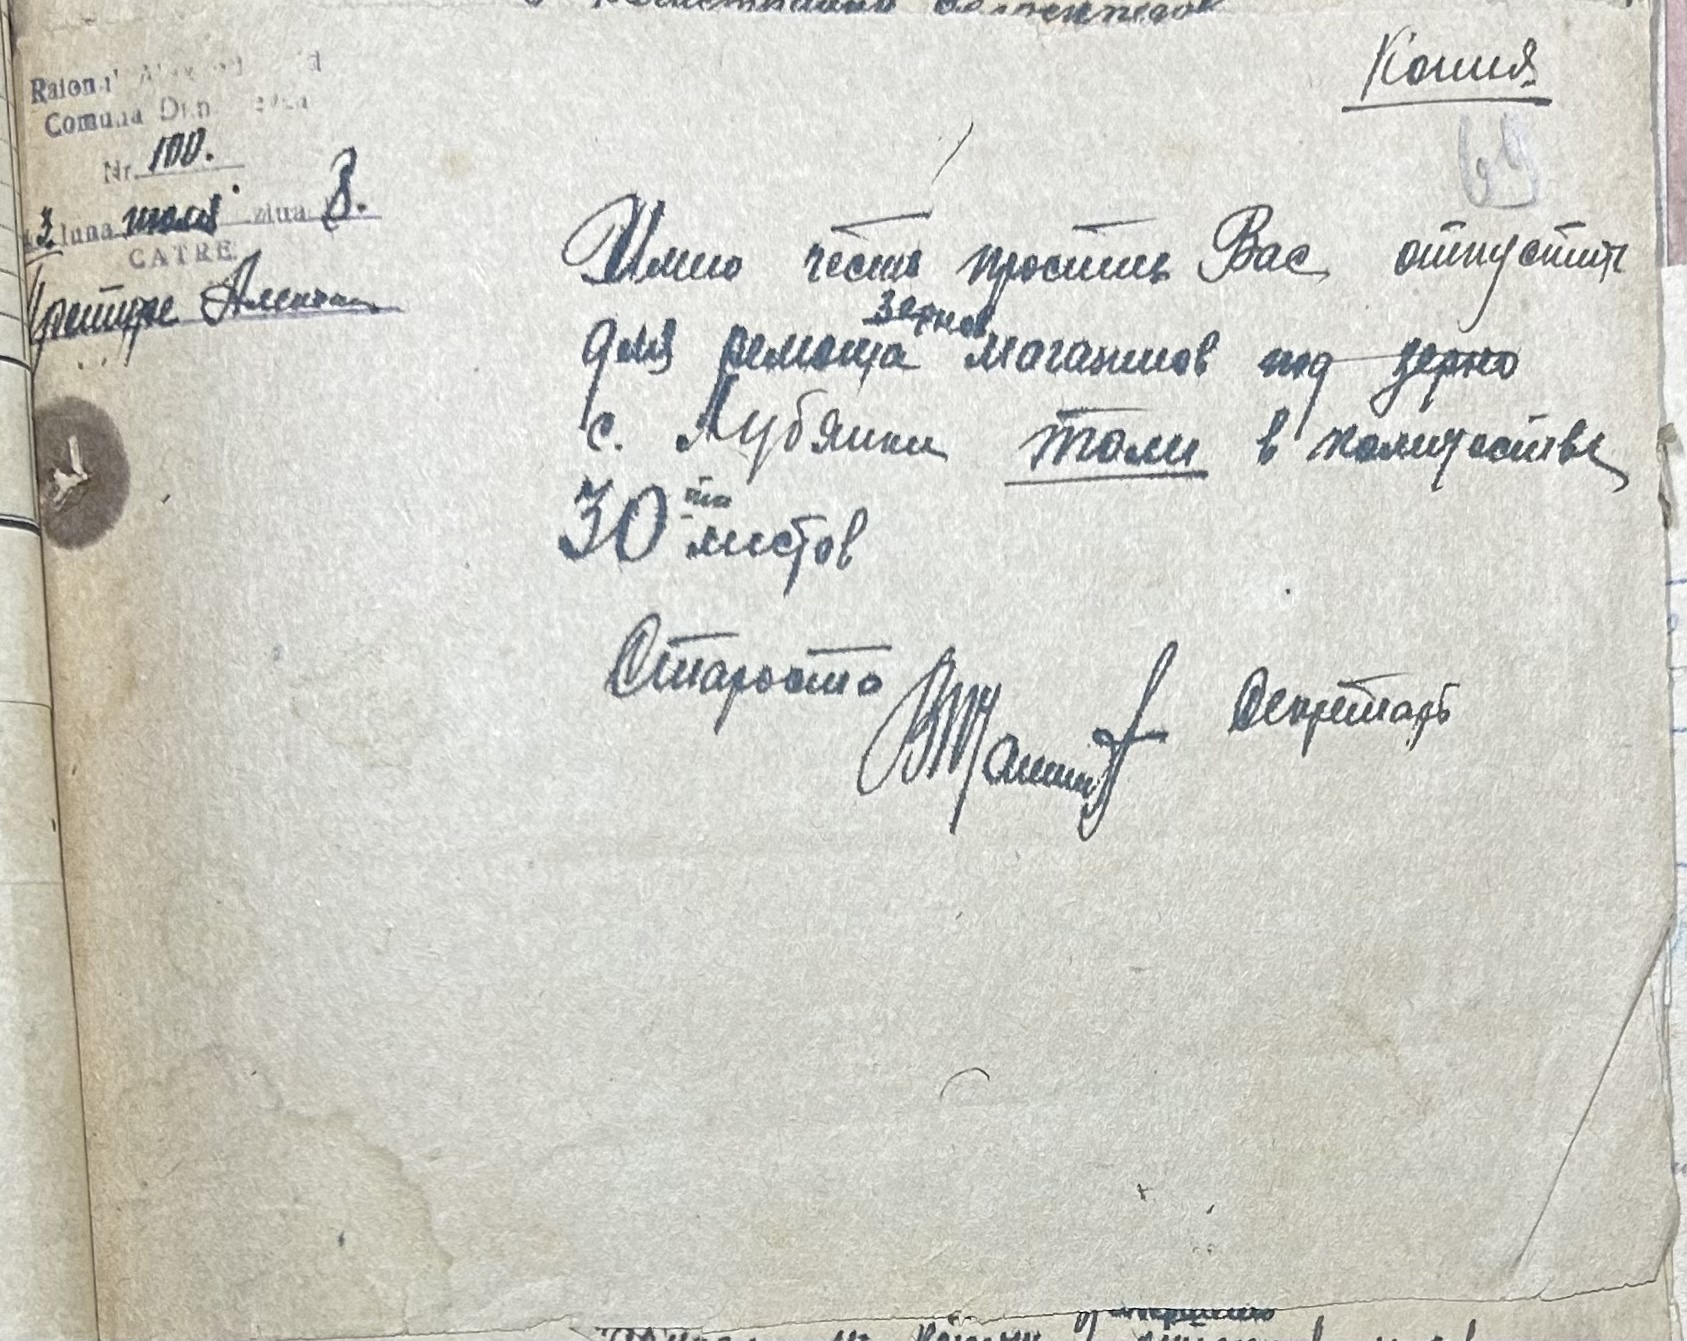 Копия
69
Raionul
Comuna
Nr. 100.
luna июля ziua 8.
CATRE
Имею честь просить Вас отпустить
для ремонта зернов магазинов под зерно
с. Лубянки толи в количестве
30 ти листов
Староста Секретарь